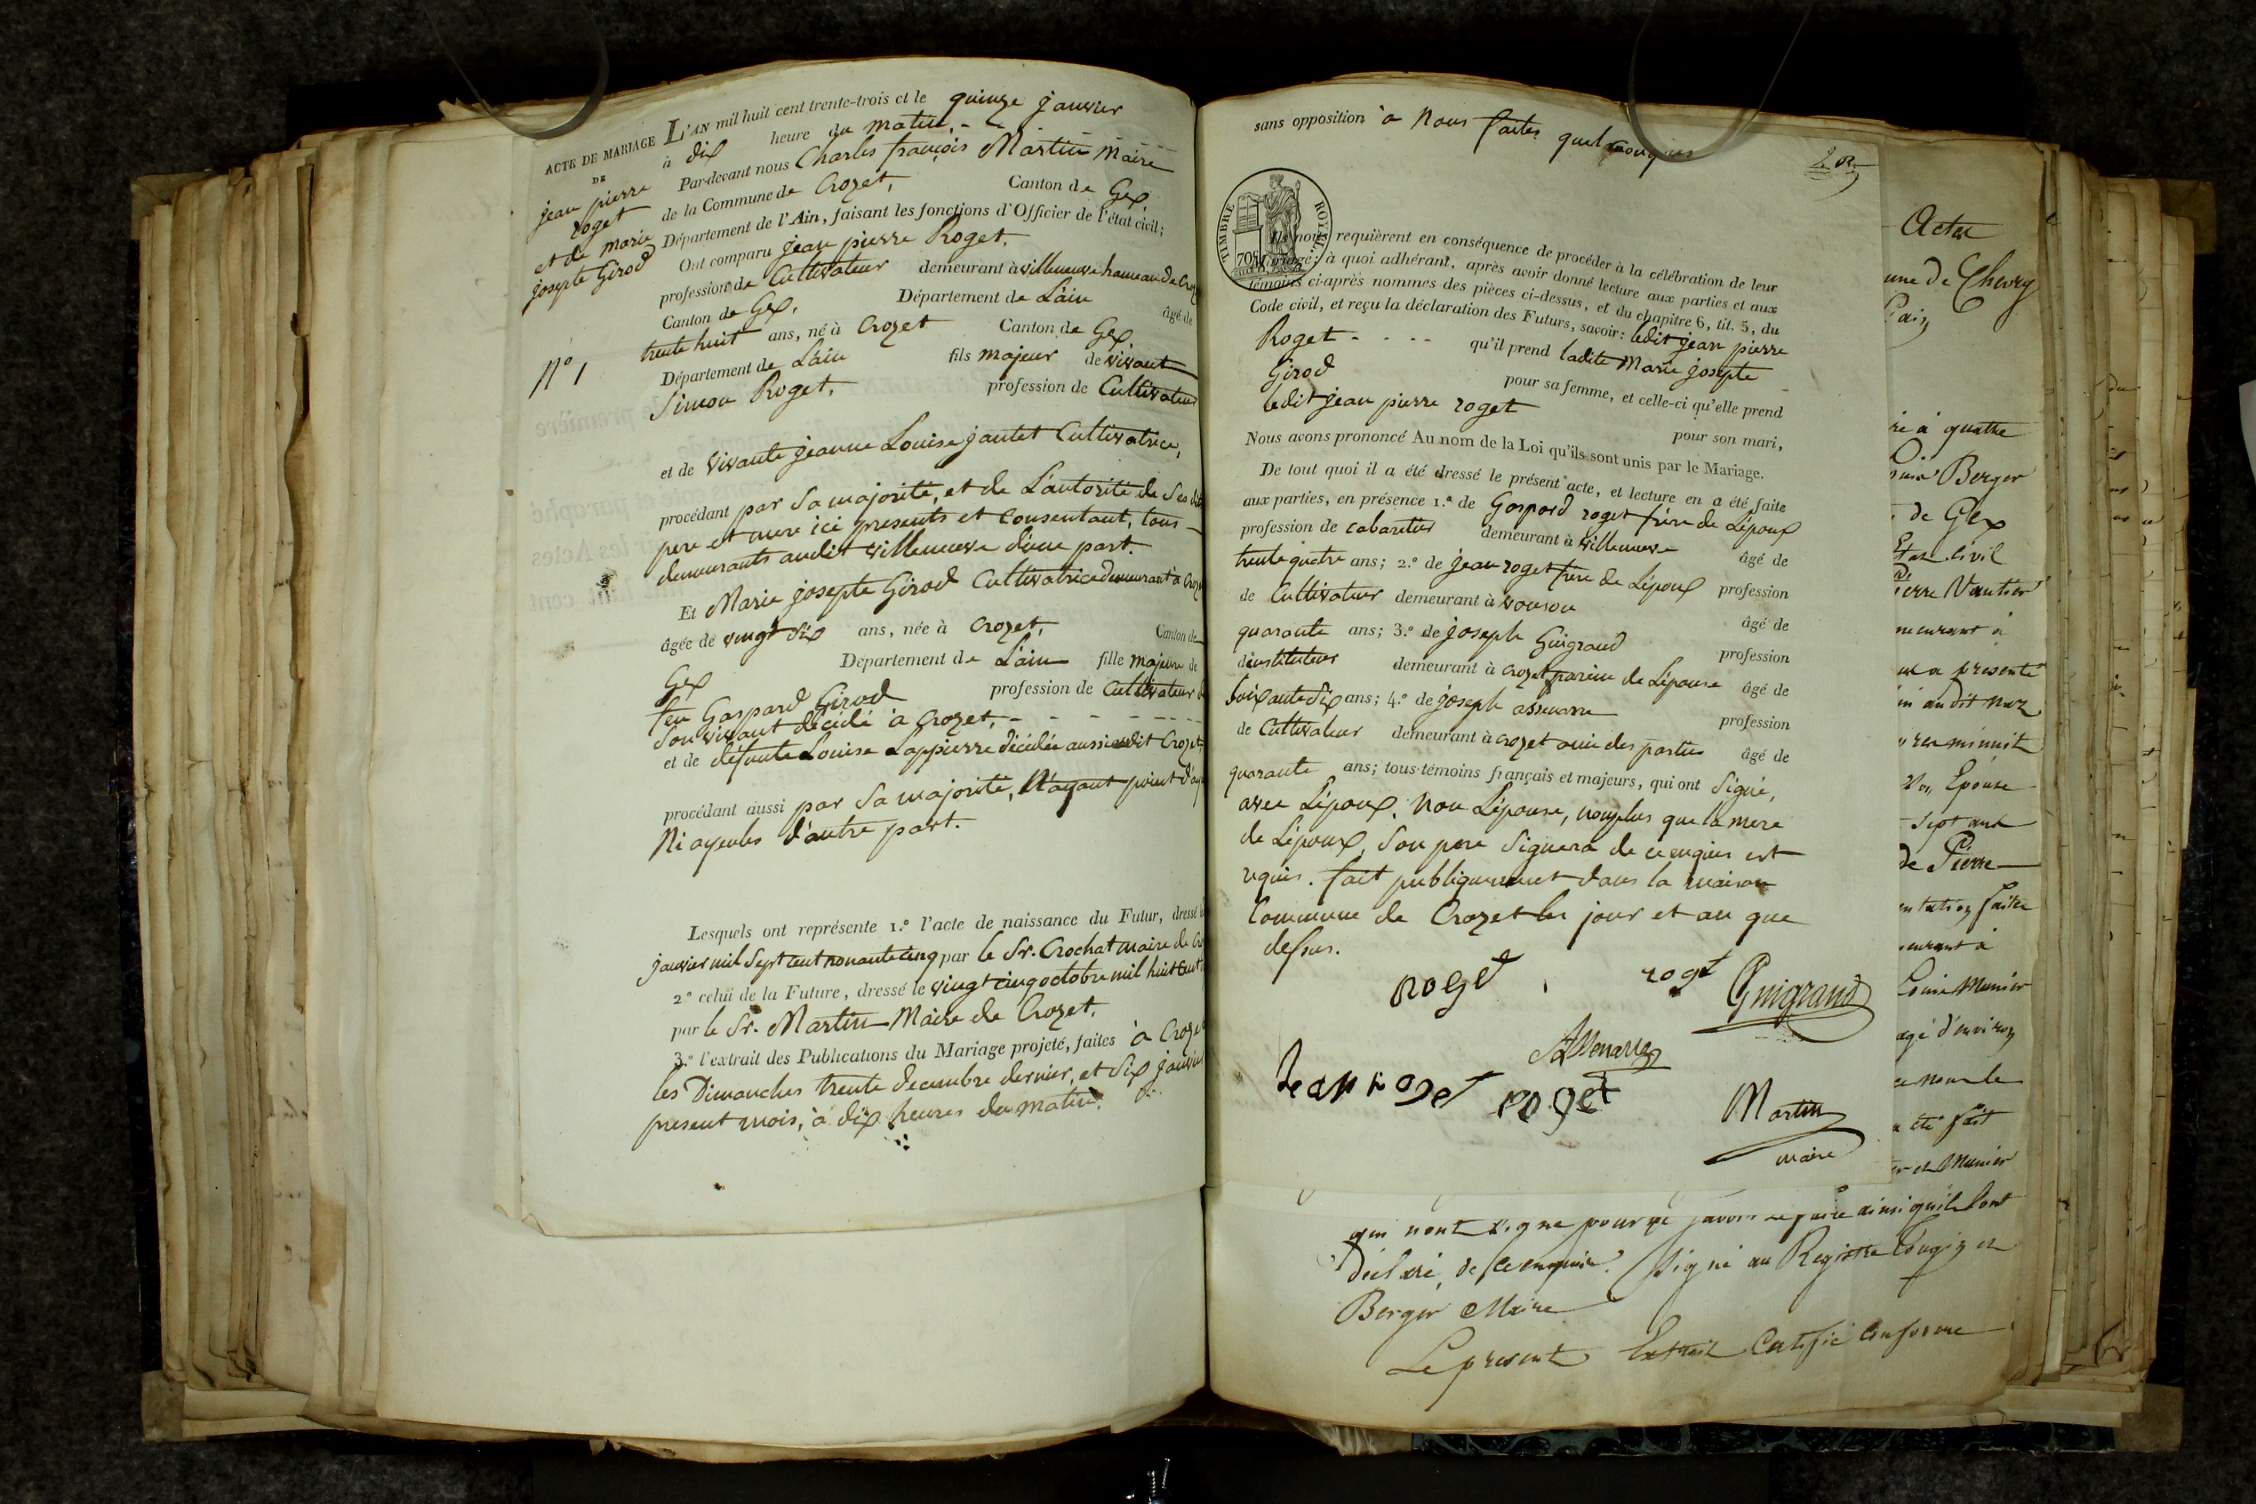 ACTE DE MARIAGE
DE
jean pierre
roget
et de marie
josepte Girod
N° 1
L'AN mil huit cent trente-trois et le quinze janvier
à dix heure du matin. -
Par-devant nous Charles françois Martin Maire
de la Commune de Crozet, Canton de Gex.
Département de l'Ain, faisant les fonctions d'Officier de l'état civil;
Ont comparu jean pierre Roget.
profession de Cultivateur demeurant à villeneuve hameau de Croz
Canton de Gex. Département de L'ain âgé de
trente huit ans, né à Crozet Canton de Gex
Département de L'ain fils majeur de vivant
Simon Roget, profession de Cultivateur
et de vivante jeanne Louise jantet Cultivatrice,
procédant par Sa majorité, et de L'autorité de Ses dit
pere et mere ici presents et consentant, tous
demeurants audit villeneuve d'une part.
Et Marie josepte Girod Cultivatrice demeurant à Croz
âgée de vingt six ans, née à Crozet, Canton de
Gex Département de L'ain fille majeure de
feu Gaspard Girod profession de Cultivateur
Son vivant décédé à Crozet, - - - -
et de défunte Louise Lappierre décédée aussi audit Crozet
procédant aussi par Sa majorité, N'ayant point d'ay
Ni ayeules d'autre part.
Lesquels ont représenté 1.° l'acte de naissance du Futur, dressé
janvier mil Sept cent nonante cinq par le Sr. Crochat maire de Cr
2° celui de la Future, dressé le vingt cinq octobre mil huit cent
par le Sr. Martin Maire de Crozet.
3.° l'extrait des Publications du Mariage projeté, faites à Croze
les Dimanches trente decembre dernier, et Six janvier
present mois, à dix heures du matin.
sans opposition à Nous faites quelconques
TIMBRE ROYAL
70c
Ils nous requièrent en conséquence de procéder à la célébration de leur
mariage; à quoi adhérant, après avoir donné lecture aux parties et aux
témoins ci-après nommés des pièces ci-dessus, et du chapitre 6, tit. 5, du
Code civil, et reçu la déclaration des Futurs, savoir: ledit jean pierre
Roget - - - - qu'il prend ladite Marie josepte
Girod pour sa femme, et celle-ci qu'elle prend
ledit jean pierre roget pour son mari,
Nous avons prononcé Au nom de la Loi qu'ils sont unis par le Mariage.
De tout quoi il a été dressé le présent acte, et lecture en a été faite
aux parties, en présence 1.° de Gaspard roget frère de L'époux
profession de cabaretier demeurant à villeneuve âgé de
trente quatre ans; 2.° de jean roget frere de L'époux profession
de Cultivateur demeurant à vouson âgé de
quarante ans; 3.° de joseph Guigraud profession
d'instituteur demeurant à crozet parein de L'épouse âgé de
Soixante Dix ans; 4.° de joseph assenarre profession
de Cultivateur demeurant à crozet amie des parties âgé de
quarante ans; tous témoins français et majeurs, qui ont Signé,
avec L'époux. Non L'épouse, nonplus que la mere
de L'époux, Son pere Signera de ce enquis est
requis. fait publiquement dans la maison
Commune de Crozet les jour et an que
dessus.
roget roget Guigraud
Assenarre
jean roget roget
Martin
maire
Actes
une de Chevry
à quatre
Berger
de Gex
Etat Civil
Pierre Vautier
demeurant à
a présenté
audit
minuit
Épouse
Sept ans
de Pierre
faite
à
Louise Munier
agé d'environ
nom le
a été fait
et Munier
qui n'ont signé pour ne savoir le faire ainsi qu'ils l'ont
déclaré, de ce enquis. Signé au Registre Tougin et
Berger Maire
Le present Extrait Certifié Conforme